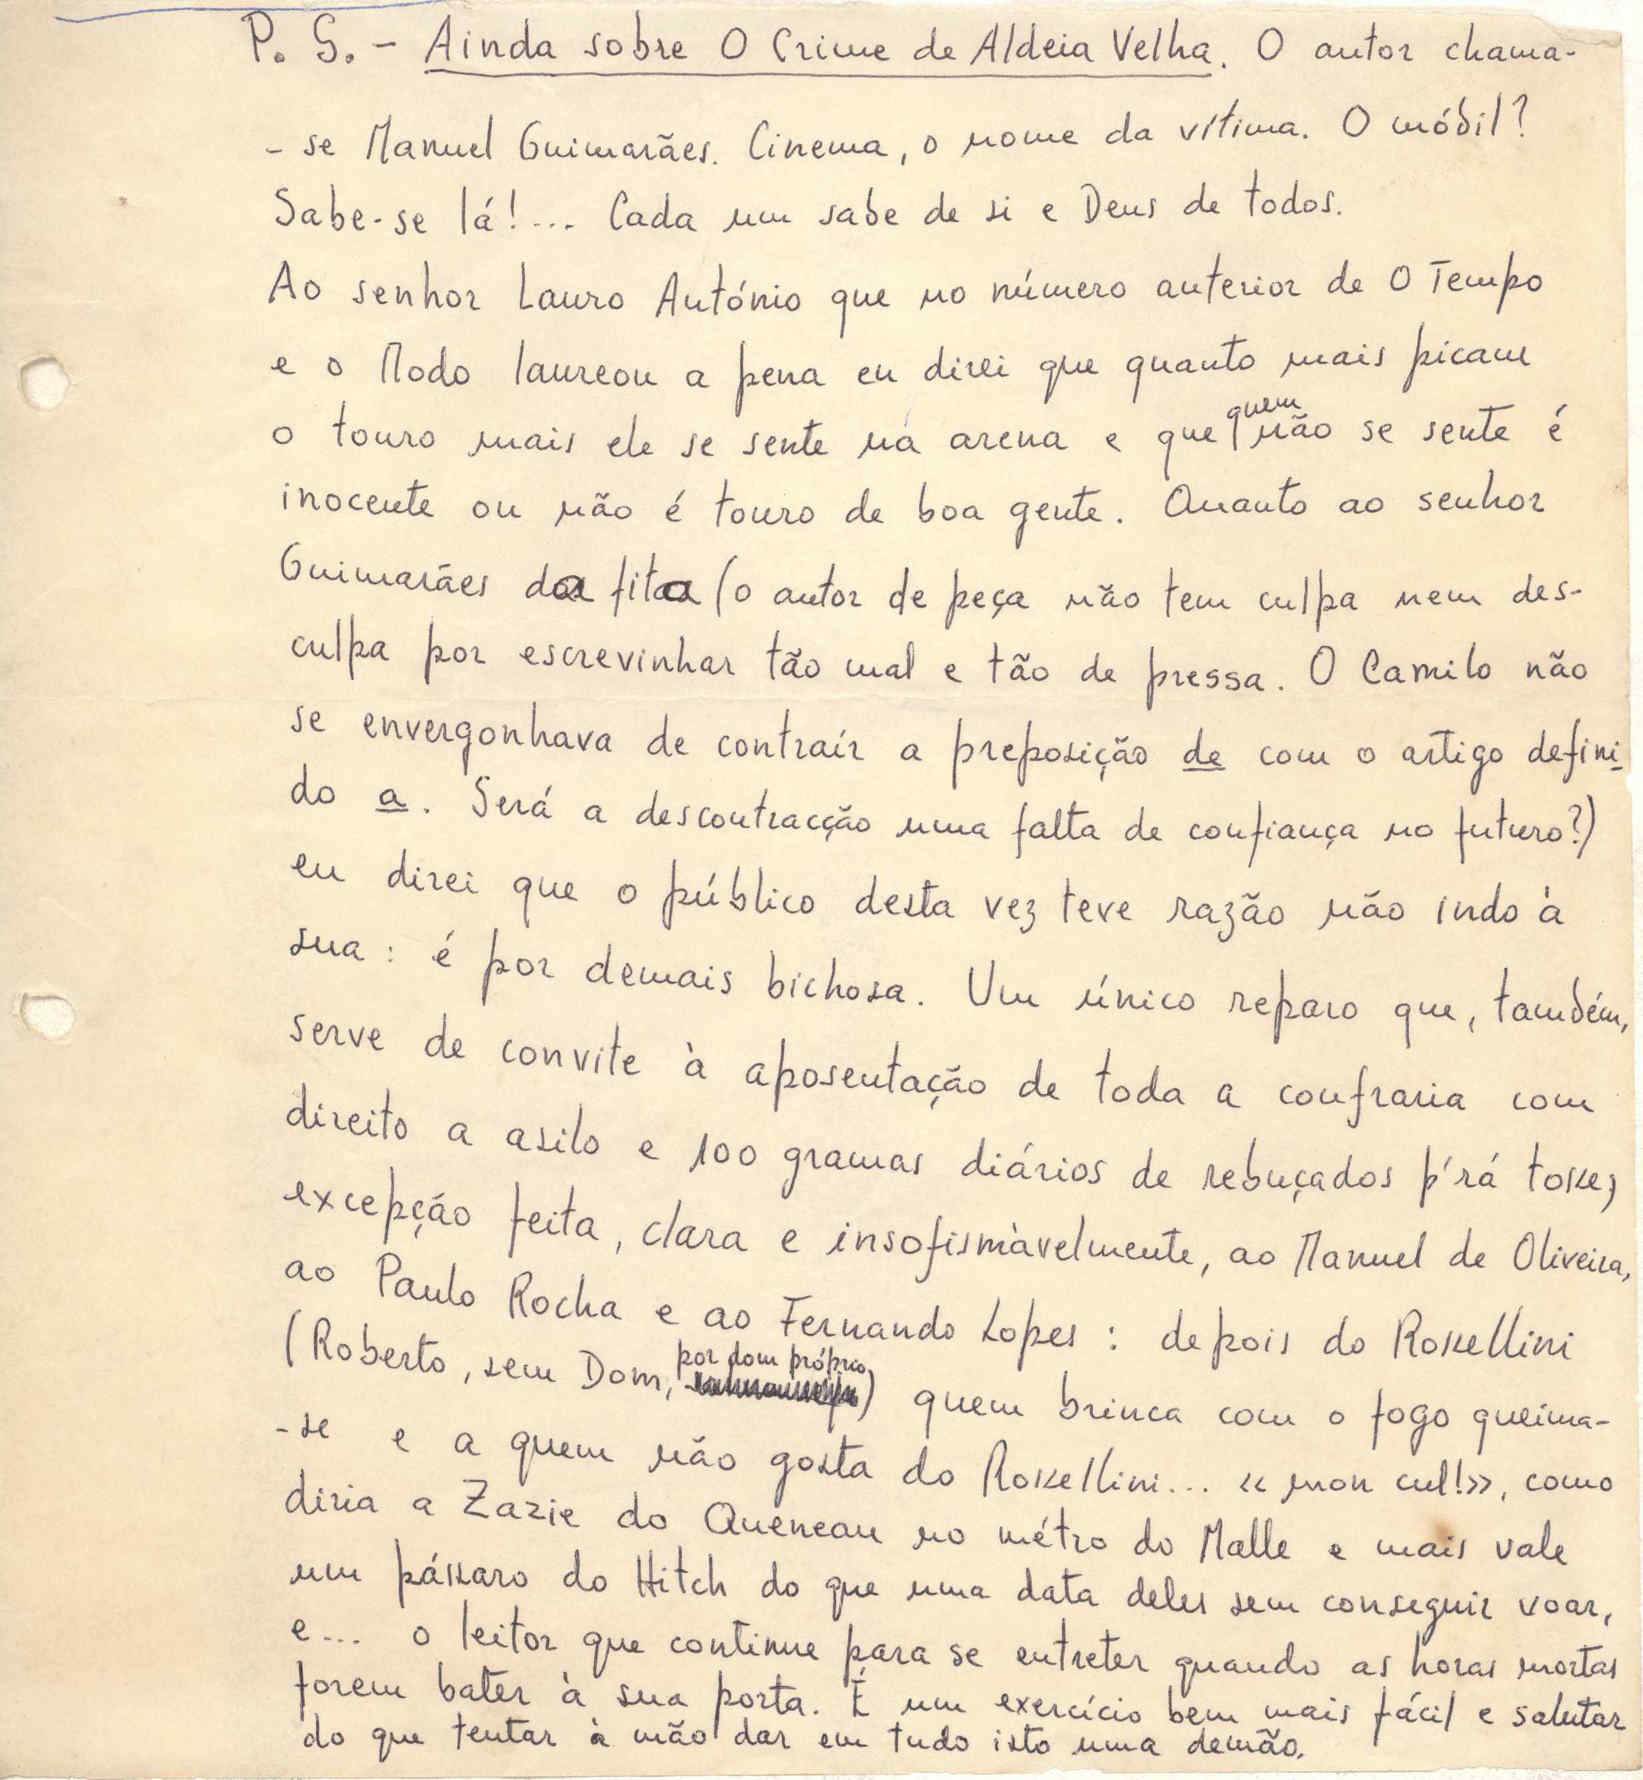 P. S. - Ainda sobre O Crime de Aldeia Velha. O autor chama-
- se Manuel Guimarães. Cinema, o nome da vítima. O móbil?
Sabe-se lá!... Cada um sabe de si e Deus de todos.
Ao senhor Lauro António que no número anterior de O Tempo
e o Modo laureou a pena eu direi que quanto mais picam
o touro mais ele se sente na arena e que quem não se sente é
inocente ou não é touro de boa gente. Quanto ao senhor
Guimarães da fita (o autor de peça não tem culpa nem des-
culpa por escrevinhar tão mal e tão de pressa. O Camilo não
se envergonhava de contrair a preposição de com o artigo defini-
do a. Será a descontracção uma falta de confiança no futuro?)
eu direi que o público desta vez teve razão não indo à
sua: é por demais bichosa. Um único reparo que, também,
serve de convite à aposentação de toda a confraria com
direito a asilo e 100 gramas diários de rebuçados p'rá tosse,
excepção feita, clara e insofismàvelmente, ao Manuel de Oliveira,
ao Paulo Rocha e ao Fernando Lopes: depois do Rossellini
(Roberto, sem Dom, por dom próprio) quem brinca com o fogo queima-
-se e a quem não gosta do Rossellini... « mon cul!», como
diria a Zazie do Queneau no métro do Malle e mais vale
um pássaro do Hitch do que uma data deles sem conseguir voar,
e... o leitor que continue para se entreter quando as horas mortas
forem bater à sua porta. É um exercício bem mais fácil e salutar
do que tentar à mão dar em tudo isto uma demão.